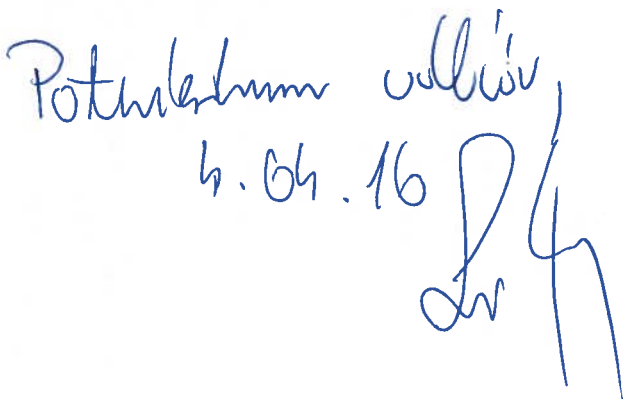 Potwierdzam odbiór,
4.04.16